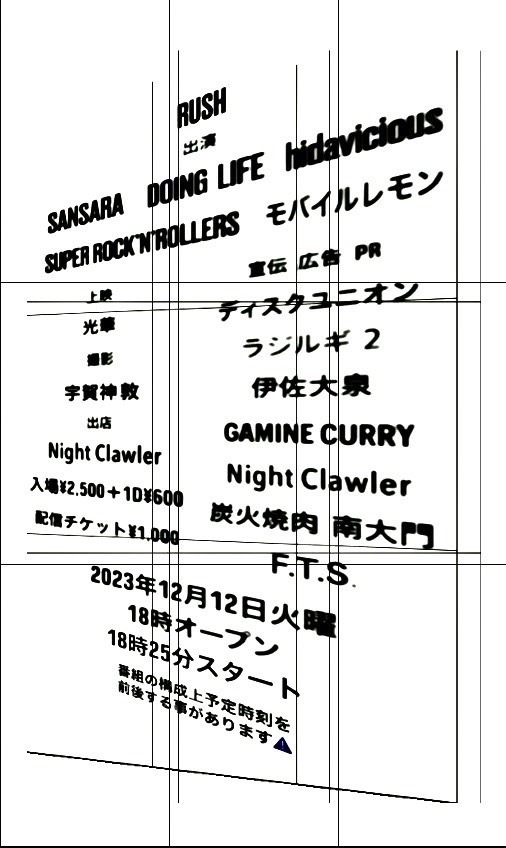 RUSH
出演
SANSARA DOING LIFE hidavicious
SUPER ROCK'N'ROLLERS モバイルレモン
上映
光華
撮影
宇賀神敦
出店
Night Clawler
入場¥2.500+1D¥600
配信チケット¥1.000
宣伝 広告 PR
ディスクユニオン
ラジルギ 2
伊佐大泉
GAMINE CURRY
Night Clawler
炭火焼肉 南大門
F.T.S.
2023年12月12日火曜
18時オープン
18時25分スタート
番組の構成上予定時刻を
前後する事があります⚠